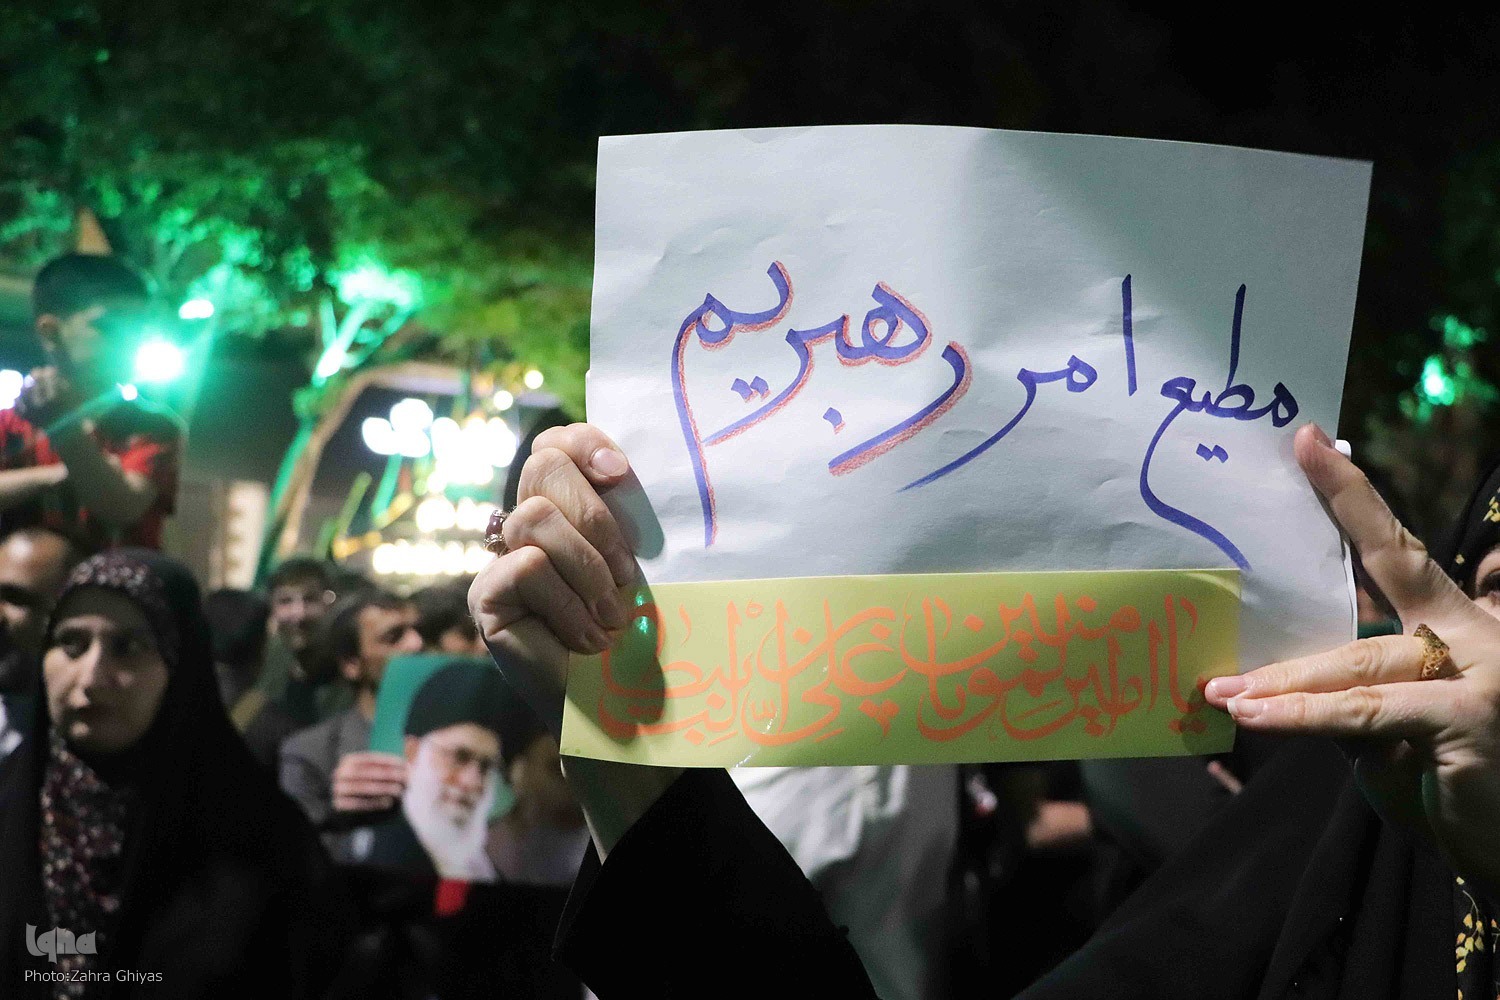 مطیع امر رهبریم
یا امیرالمومنین علی بن ابی طالب
Iqna
Photo:Zahra Ghiyas